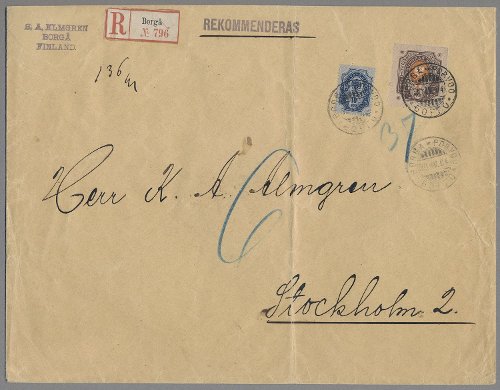 S. A. ELMGREN
BORGÅ
FINLAND.
R
Borgå
№ 796
REKOMMENDERAS
136
37
6
Herr K. A. Almgren
Stockholm 2.